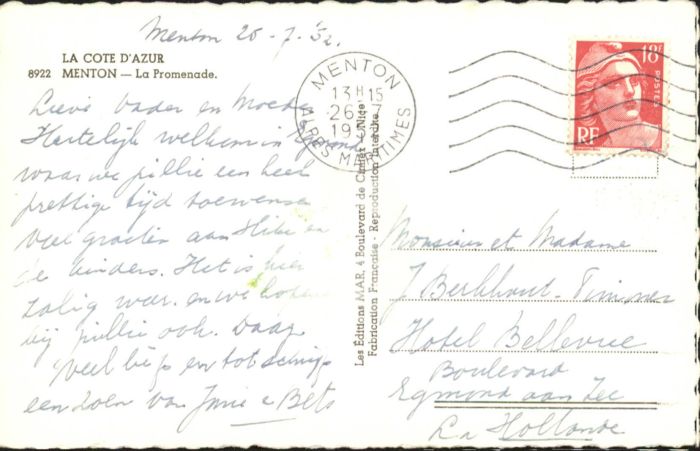 Menton 26-7-'52.
LA COTE D'AZUR
8922 MENTON — La Promenade.
MENTON
13H15
26-7
19
ALPES MARITIMES
18F
POSTES
RF
Lieve Vader en Moeder
Hartelijk welkom in Egmond
waar we jullie een heel
prettige tijd toewensen
Veel groeten aan en
de kinders. Het is hier
zalig war. en we hopen
bij jullie ook. Daag
Veel liefs en tot schrijfs
een zoen van Janie & Bets
Les Éditions MAR, 4 Boulevard de Cimiez - Nice
Fabrication Française - Reproduction Interdite.
Monsieur et Madame
J Berkhout-Timmer
Hotel Bellevue
Boulevard
Egmond aan Zee
La Hollande